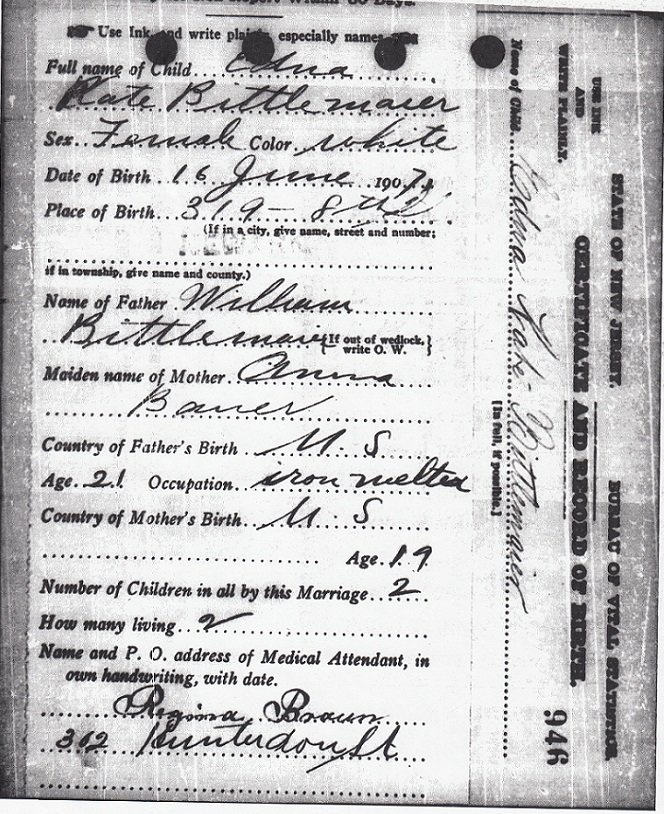 Use Ink and write plainly, especially names
Full name of Child Edna
Kate Bittlemaier
Sex Female Color white
Date of Birth 16 June 1907
Place of Birth 319 - 8th
(If in a city, give name, street and number;
if in township, give name and county.)
Name of Father William
Bittlemaier {If out of wedlock, write O. W.}
Maiden name of Mother Anna
Bauer
Country of Father's Birth U. S
Age 21 Occupation iron melter
Country of Mother's Birth U. S
Age 19
Number of Children in all by this Marriage 2
How many living 2
Name and P. O. address of Medical Attendant, in
own handwriting, with date.
Regina Braun
302 Hunterdon St
USE INK
AND
WRITE PLAINLY.
Name of Child Edna Kate Bittlemaier
[In full, if possible.]
STATE OF NEW JERSEY. BUREAU OF VITAL STATISTICS.
CERTIFICATE AND RECORD OF BIRTH.
946